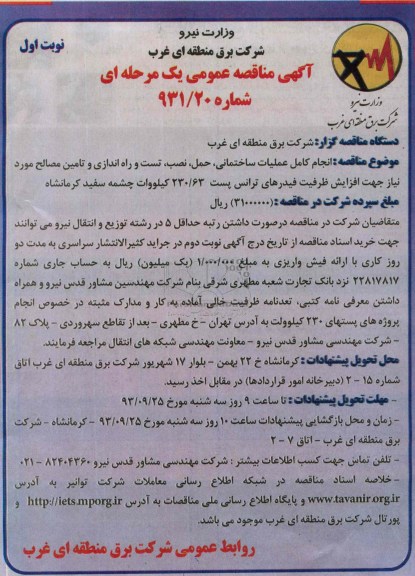 وزارت نیرو
شرکت برق منطقه ای غرب
نوبت اول
آگهی مناقصه عمومی یک مرحله ای
شماره ۹۳۱/۲۰
وزارت نیرو
شرکت برق منطقه‌ای غرب
دستگاه مناقصه گزار: شرکت برق منطقه ای غرب
موضوع مناقصه: انجام کامل عملیات ساختمانی، حمل، نصب، تست و راه اندازی و تامین مصالح مورد
نیاز جهت افزایش ظرفیت فیدرهای ترانس پست ۲۳۰/۶۳ کیلووات چشمه سفید کرمانشاه
مبلغ سپرده شرکت در مناقصه: (۳۱۰۰۰۰۰۰) ریال
متقاضیان شرکت در مناقصه درصورت داشتن رتبه حداقل ۵ در رشته توزیع و انتقال نیرو می توانند
جهت خرید اسناد مناقصه از تاریخ درج آگهی نوبت دوم در جراید کثیرالانتشار سراسری به مدت دو
روز کاری با ارائه فیش واریزی به مبلغ ۱/۰۰۰/۰۰۰ (یک میلیون) ریال به حساب جاری شماره
۲۲۸۱۷۸۱۷ نزد بانک تجارت شعبه مطهری شرقی بنام شرکت مهندسین مشاور قدس نیرو و همراه
داشتن معرفی نامه کتبی، تعدنامه ظرفیت خالی آماده به کار و مدارک مثبته در خصوص انجام
پروژه های پستهای ۲۳۰ کیلوولت به آدرس تهران - خ مطهری - بعد از تقاطع سهروردی - پلاک ۸۲
- شرکت مهندسی مشاور قدس نیرو - معاونت مهندسی شبکه های انتقال مراجعه فرمایند.
محل تحویل پیشنهادات: کرمانشاه خ ۲۲ بهمن - بلوار ۱۷ شهریور شرکت برق منطقه ای غرب اتاق
شماره ۱۵ - ۲ (دبیرخانه امور قراردادها) در مقابل اخذ رسید.
- مهلت تحویل پیشنهادات: تا ساعت ۹ روز سه شنبه مورخ ۹۳/۰۹/۲۵
- زمان و محل بازگشایی پیشنهادات ساعت ۱۰ روز سه شنبه مورخ ۹۳/۰۹/۲۵ - کرمانشاه - شرکت
برق منطقه ای غرب - اتاق ۷ - ۲
- تلفن تماس جهت کسب اطلاعات بیشتر: شرکت مهندسی مشاور قدس نیرو ۸۲۴۰۴۳۶۰ - ۰۲۱
- خلاصه اسناد مناقصه در شبکه اطلاع رسانی معاملات شرکت توانیر به آدرس
www.tavanir.org.ir و پایگاه اطلاع رسانی ملی مناقصات به آدرس http://iets.mporg.ir و
پورتال شرکت برق منطقه ای غرب موجود می باشد.
روابط عمومی شرکت برق منطقه ای غرب